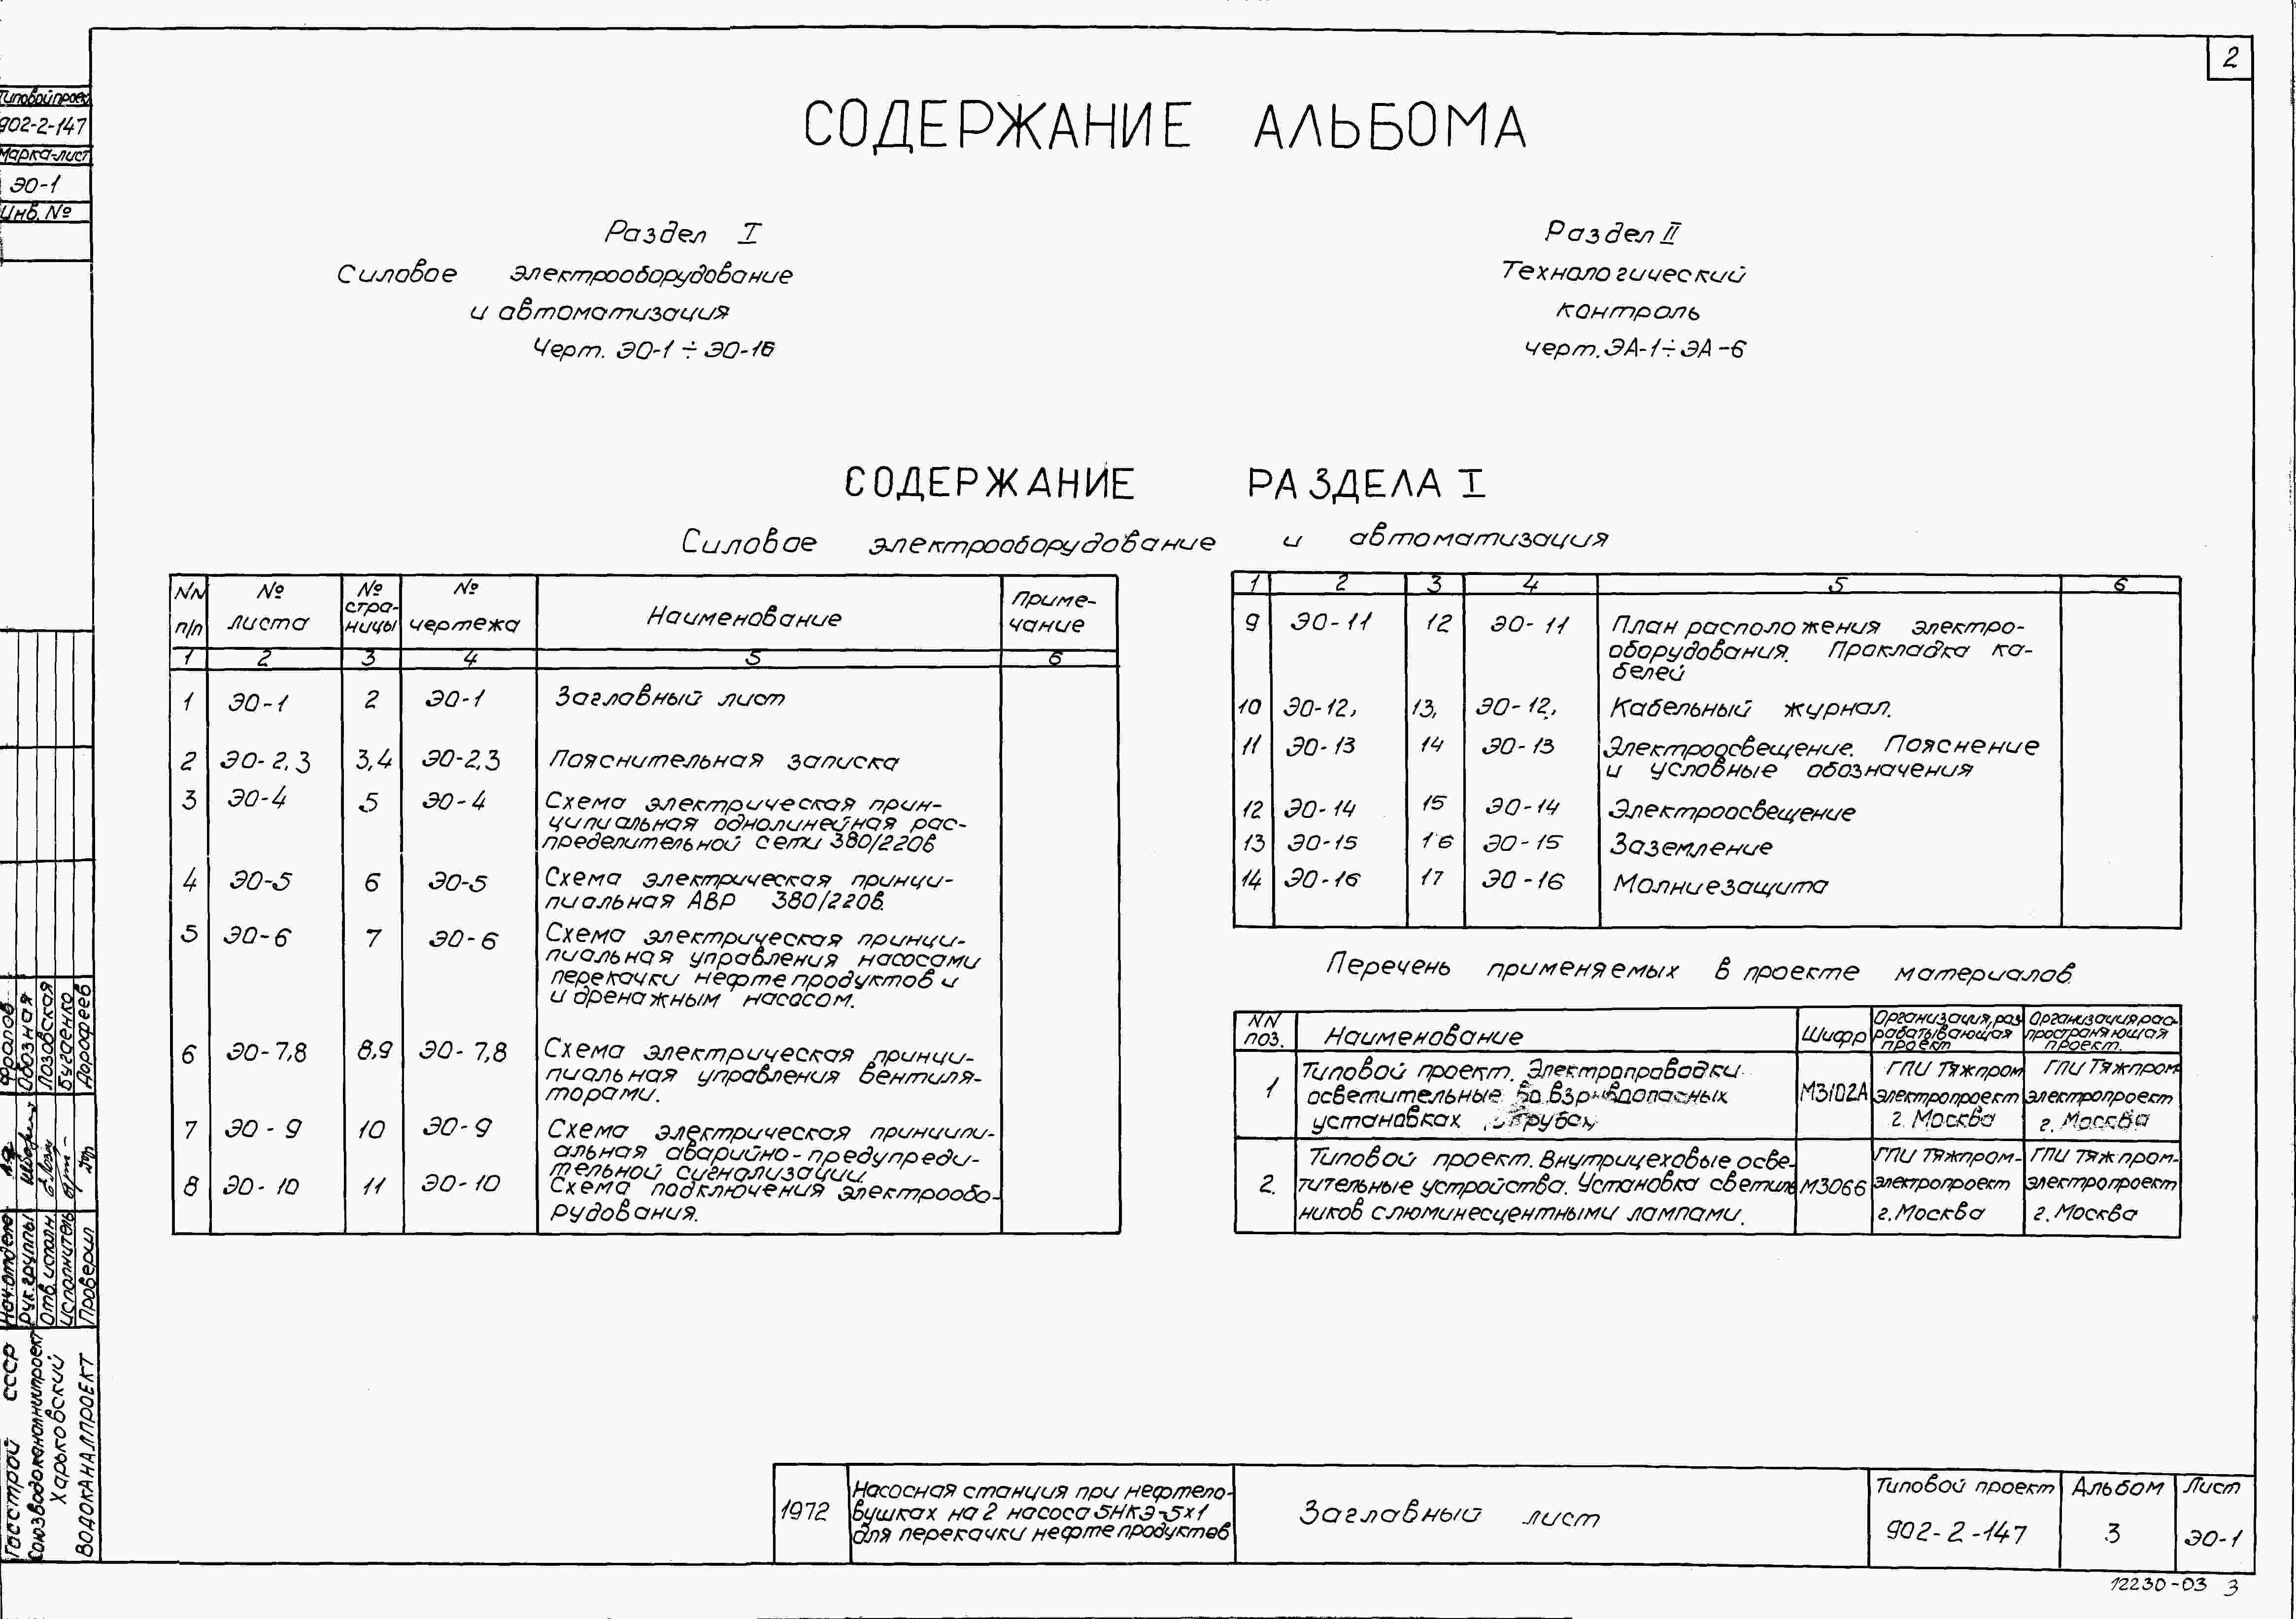 2
Типовой проект
902-2-147
Марка-лист
ЭО-1
Инв. №
СОДЕРЖАНИЕ АЛЬБОМА
Раздел I
Силовое электрооборудование
и автоматизация
Черт. ЭО-1 ÷ ЭО-16
Раздел II
Технологический
контроль
черт. ЭА-1 ÷ ЭА-6
СОДЕРЖАНИЕ РАЗДЕЛА I
Силовое электрооборудование и автоматизация
NN п/п № листа № стра- ницы № чертежа Наименование Приме- чание
1 2 3 4 5 6
1 ЭО-1 2 ЭО-1 Заглавный лист
2 ЭО-2,3 3,4 ЭО-2,3 Пояснительная записка
3 ЭО-4 5 ЭО-4 Схема электрическая прин-
ципиальная однолинейная рас-
пределительной сети 380/220в
4 ЭО-5 6 ЭО-5 Схема электрическая принци-
пиальная АВР 380/220в.
5 ЭО-6 7 ЭО-6 Схема электрическая принци-
пиальная управления насосами
перекачки нефтепродуктов и
и дренажным насосом.
6 ЭО-7,8 8,9 ЭО-7,8 Схема электрическая принци-
пиальная управления вентиля-
торами.
7 ЭО-9 10 ЭО-9 Схема электрическая принципи-
альная аварийно-предупреди-
тельной сигнализации.
8 ЭО-10 11 ЭО-10 Схема подключения электрообо-
рудования.
1 2 3 4 5 6
9 ЭО-11 12 ЭО-11 План расположения электро-
оборудования. Прокладка ка-
белей
10 ЭО-12, 13, ЭО-12, Кабельный журнал.
11 ЭО-13 14 ЭО-13 Электроосвещение. Пояснение
и условные обозначения
12 ЭО-14 15 ЭО-14 Электроосвещение
13 ЭО-15 16 ЭО-15 Заземление
14 ЭО-16 17 ЭО-16 Молниезащита
Перечень применяемых в проекте материалов.
NN поз. Наименование Шифр Организация, раз рабатывающая проект Организация рас- пространяющая проект.
1 Типовой проект. Электропроводки
осветительные во взрывоопасных
установках в трубах
М3102А
ГПИ Тяжпром
электропроект
г. Москва
ГПИ Тяжпром
электропроект
г. Москва
2. Типовой проект. Внутрицеховые осве-
тительные устройства. Установка светиль
ников с люминесцентными лампами.
М3066
ГПИ Тяжпром-
электропроект
г. Москва
ГПИ Тяжпром-
электропроект
г. Москва
Нач. отдела Фролов
Рук. группы Обозная
Отв. исполн. Лозовская
исполнитель Бугаенко
Проверил Дорофеев
Госстрой СССР
Союзводоканалниипроект
Харьковский
ВОДОКАНАЛПРОЕКТ
1972
Насосная станция при нефтело-
вушках на 2 насоса 5НКЭ-5х1
для перекачки нефтепродуктов
Заглавный лист
Типовой проект
902-2-147
Альбом
3
Лист
ЭО-1
12230-03 3